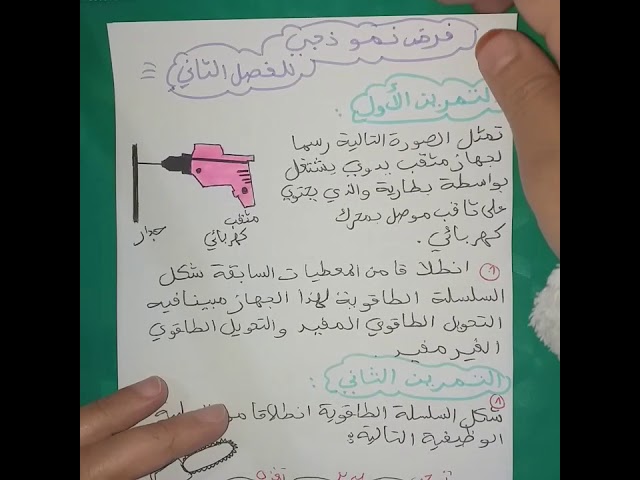 فرض نموذجي
للفصل الثاني
التمرين الأول :
تمثل الصورة التالية رسما
لجهاز مثقب يدوي يشتغل
بواسطة بطارية والذي يحتوي
على ثاقب موصل بمحرك
كهربائي .
مثقب
كهربائي
جدار
1 انطلاقا من المعطيات السابقة شكل
السلسلة الطاقوية لهذا الجهاز مبينا فيه
التحويل الطاقوي المفيد والتحويل الطاقوي
الغير مفيد .
التمرين الثاني :
1 شكل السلسلة الطاقوية انطلاقا من
الوظيفية التالية :